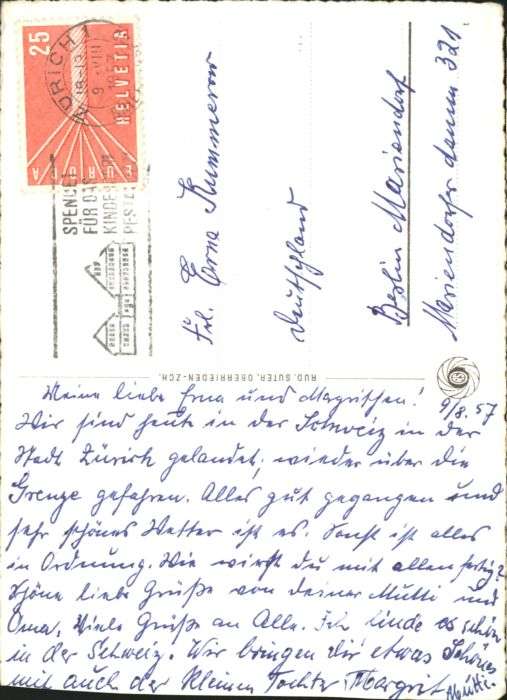 25
HELVETIA
EUROPA
ZÜRICH 1
18-19
9.VIII
1957
SPENDET
FÜR DAS
KINDERDORF
PESTALOZZI
Frl. Erna Kummerow
Deutschland
Berlin Mariendorf
Mariendorfer damm 321
RUD. SUTER, OBERRIEDEN-ZCH.
Meine liebe Erna und Magritchen!
9/8.57
Wir sind heute in der Schweiz in der
Stadt Zürich gelandet, wieder über die
Grenze gefahren. Alles gut gegangen und
sehr schönes Wetter ist es. Sonst ist alles
in Ordnung. Wie wirst du mit allem fertig?
Schöne liebe Grüße von deiner Mutti und
Oma. Viele Grüße an Alle. Ich finde es schön
in der Schweiz. Wir bringen dir etwas Schönes
mit auch der kleinen Tochter Margrit Mutti.